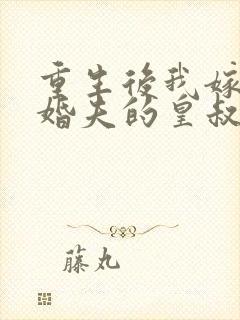 重生後我嫁
婚夫的皇叔
藤丸